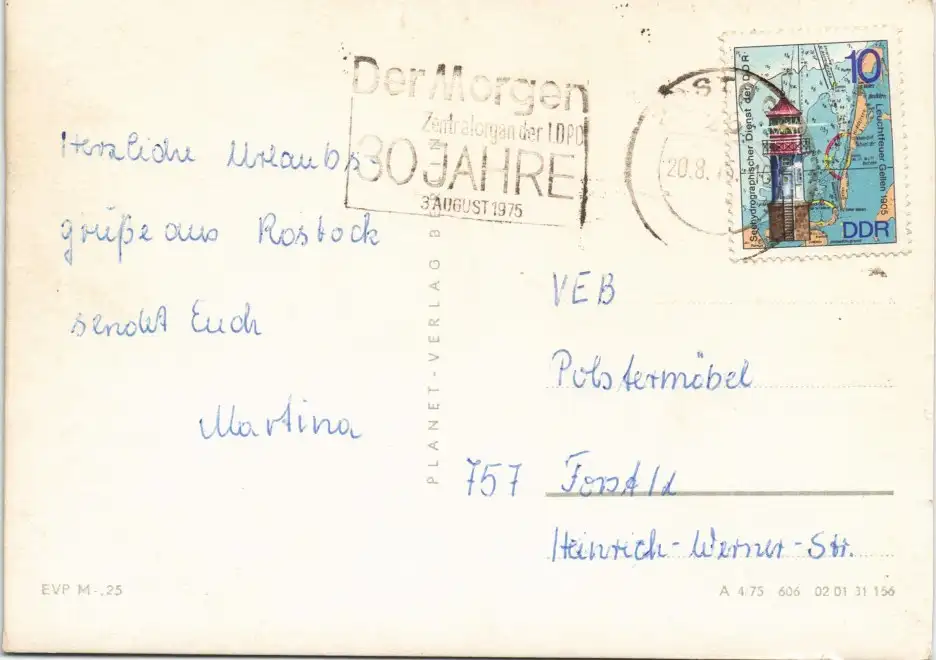 Herzliche Urlaubs-
grüße aus Rostock
sendet Euch
Martina
Der Morgen
Zentralorgan der LDPD
30 JAHRE
3.AUGUST 1975
20.8.
10
Seehydrographischer Dienst der DDR
Leuchtfeuer Gellen 1905
DDR
PLANET-VERLAG BERLIN
VEB
Polstermöbel
757 Forst/L
Heinrich-Werner-Str.
EVP M -.25
A 4/75 606 02 01 31 156